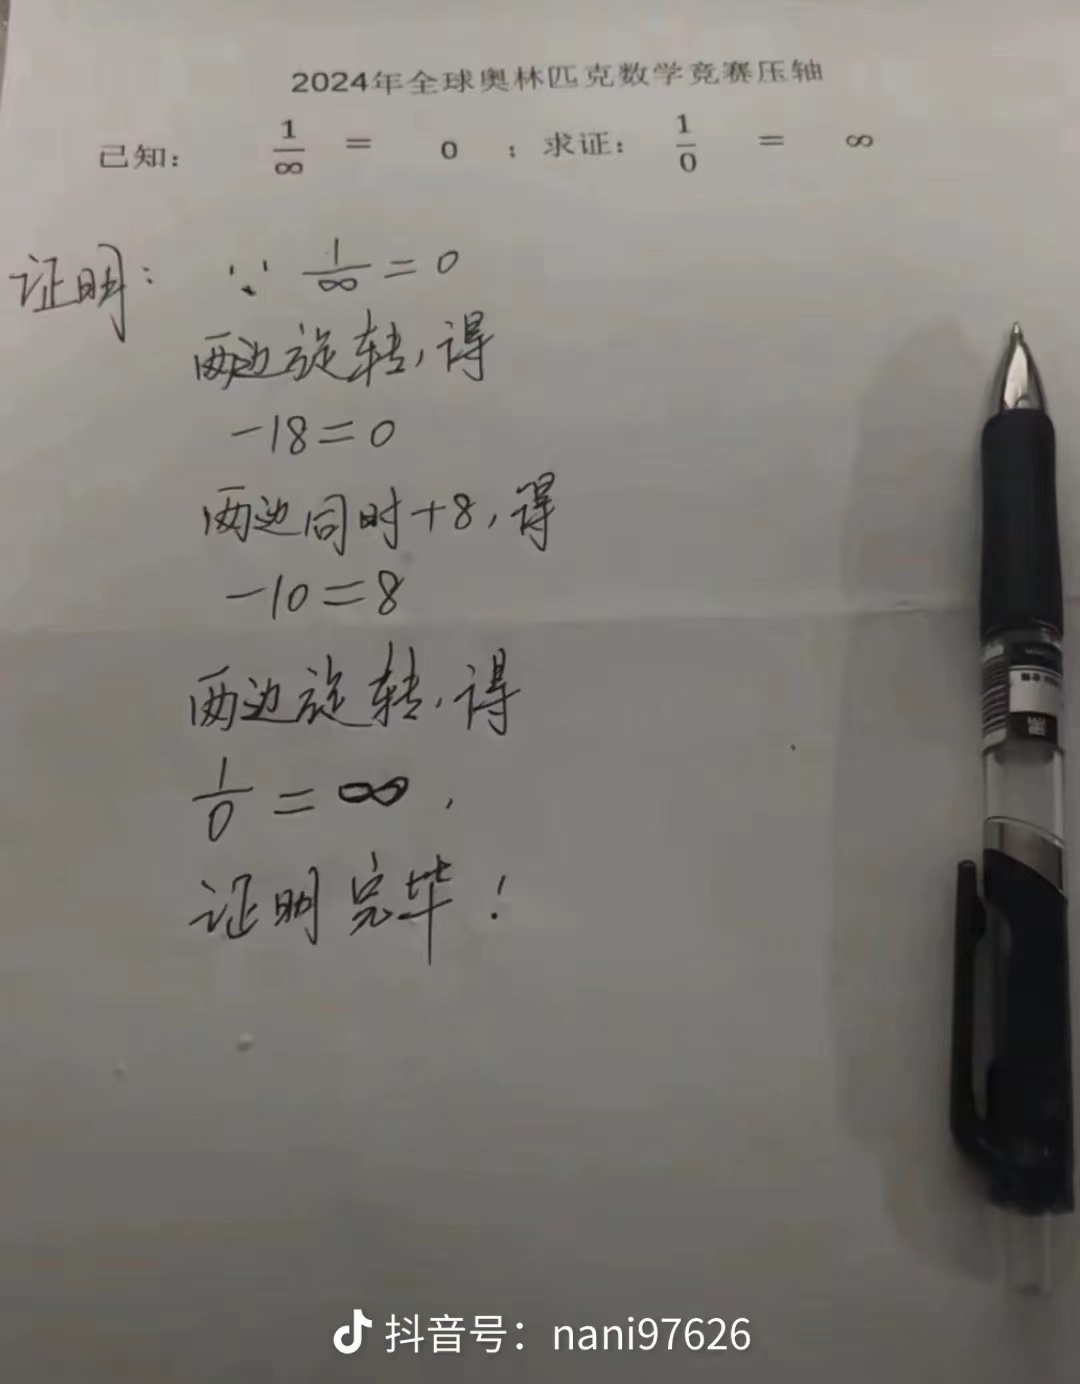 2024年全球奥林匹克数学竞赛压轴
已知： 1/∞ = 0 ；求证： 1/0 = ∞
证明： ∵ 1/∞ = 0
两边旋转，得
-18=0
两边同时+8，得
-10=8
两边旋转，得
1/0 = ∞．
证明完毕！
抖音号：nani97626